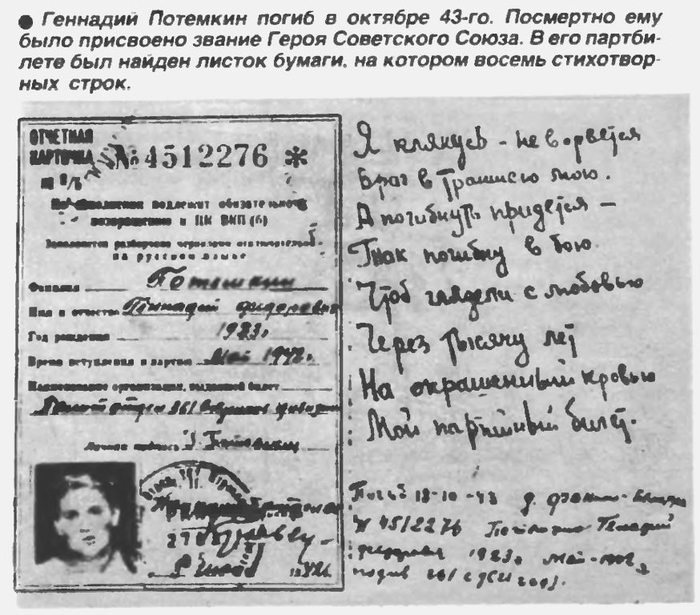 ● Геннадий Потемкин погиб в октябре 43-го. Посмертно ему
было присвоено звание Героя Советского Союза. В его партби-
лете был найден листок бумаги, на котором восемь стихотвор-
ных строк.
ОТЧЕТНАЯ
КАРТОЧКА № 4512276 *
По заполнении подлежит обязательному
возвращению в ЦК ВКП(б)
Заполняется разборчиво чернилами
на русском языке
Фамилия Потемкин
Имя и отчество Геннадий
Год рождения 1923г
Время вступления в партию Май 1942г
Наименование организации, выдавшей билет
Личная подпись
Я клянусь - не ворвется
Враг в траншею мою.
А погибнуть придется —
Так погибну в бою
Чтоб глядели с любовью
Через тысячу лет
На окрашенный кровью
Мой партийный билет.
18-10-43 д.
№ 4512276
1923г